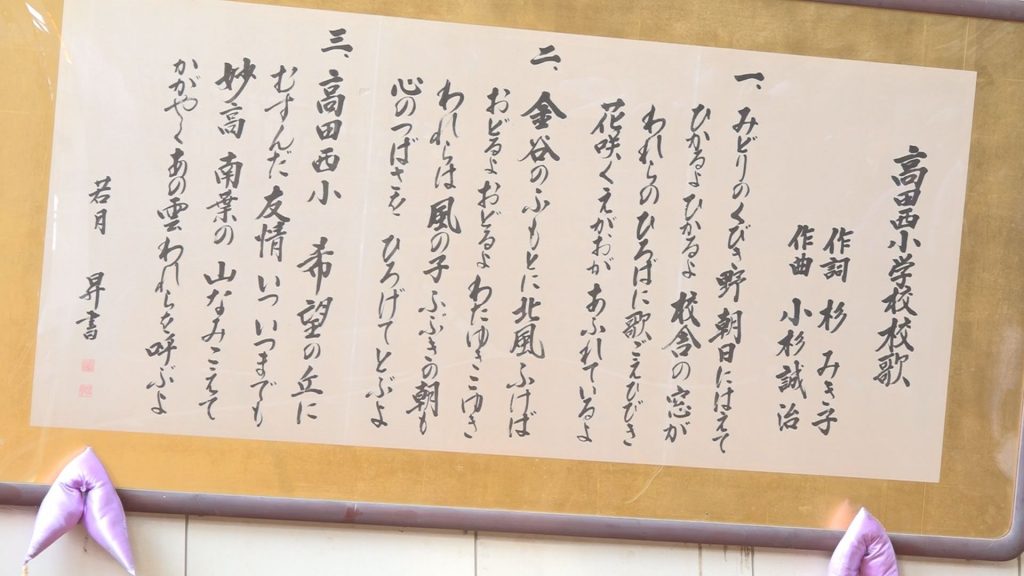 高田西小学校校歌
作詞 杉 みき子
作曲 小杉 誠治
一、みどりのくびき野 朝日にはえて
ひかるよひかるよ 校舎の窓が
われらのひろばに歌ごえひびき
花咲くえがおが あふれているよ
二、金谷のふもとに北風ふけば
おどるよおどるよ わたゆきこゆき
われらは風の子 ふぶきの朝も
心のつばさを ひろげてとぶよ
三、高田西小 希望の丘に
むすんだ友情 いついつまでも
妙高 南葉の 山なみこえて
かがやくあの雲 われらを呼ぶよ
若月 昇書